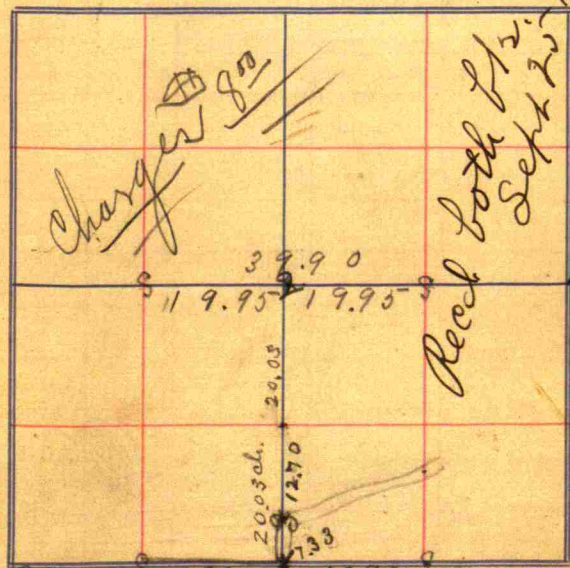 Charges 8.00
Recd both
Sept 25
39.90
19.95 19.95
20.03
20.03 ch.
12.70
7.33